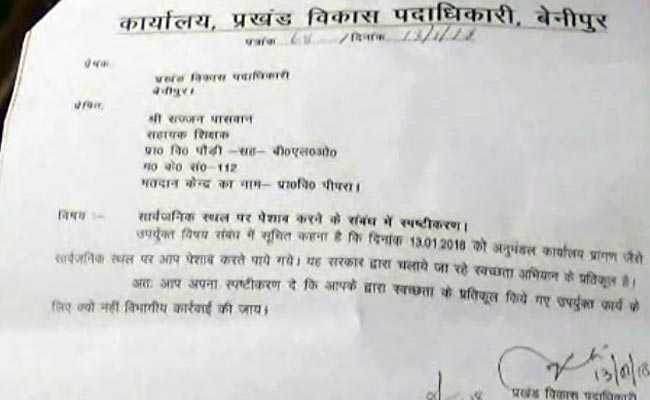 कार्यालय, प्रखंड विकास पदाधिकारी, बेनीपुर
पत्रांक 68 /दिनांक 13/1/18
प्रेषक,
प्रखंड विकास पदाधिकारी
बेनीपुर।
प्रेषित,
श्री सज्जन पासवान
सहायक शिक्षक
प्रा० वि० पौड़ी –सह– बी०एल०ओ०
म० के० सं०-112
मतदान केन्द्र का नाम– प्रा०वि० पीपरा।
विषय :– सार्वजनिक स्थल पर पेशाब करने के संबंध में स्पष्टीकरण।
उपर्युक्त विषय संबंध में सूचित कहना है कि दिनांक 13.01.2018 को अनुमंडल कार्यालय प्रांगण जैसे
सार्वजनिक स्थल पर आप पेशाब करते पाये गये। यह सरकार द्वारा चलाये जा रहे स्वच्छता अभियान के प्रतिकूल है।
अतः आप अपना स्पष्टीकरण दे कि आपके द्वारा स्वच्छता के प्रतिकूल किये गए उपर्युक्त कार्य के
लिए क्यो नहीं विभागीय कार्रवाई की जाय।
13/01/18
प्रखंड विकास पदाधिकारी